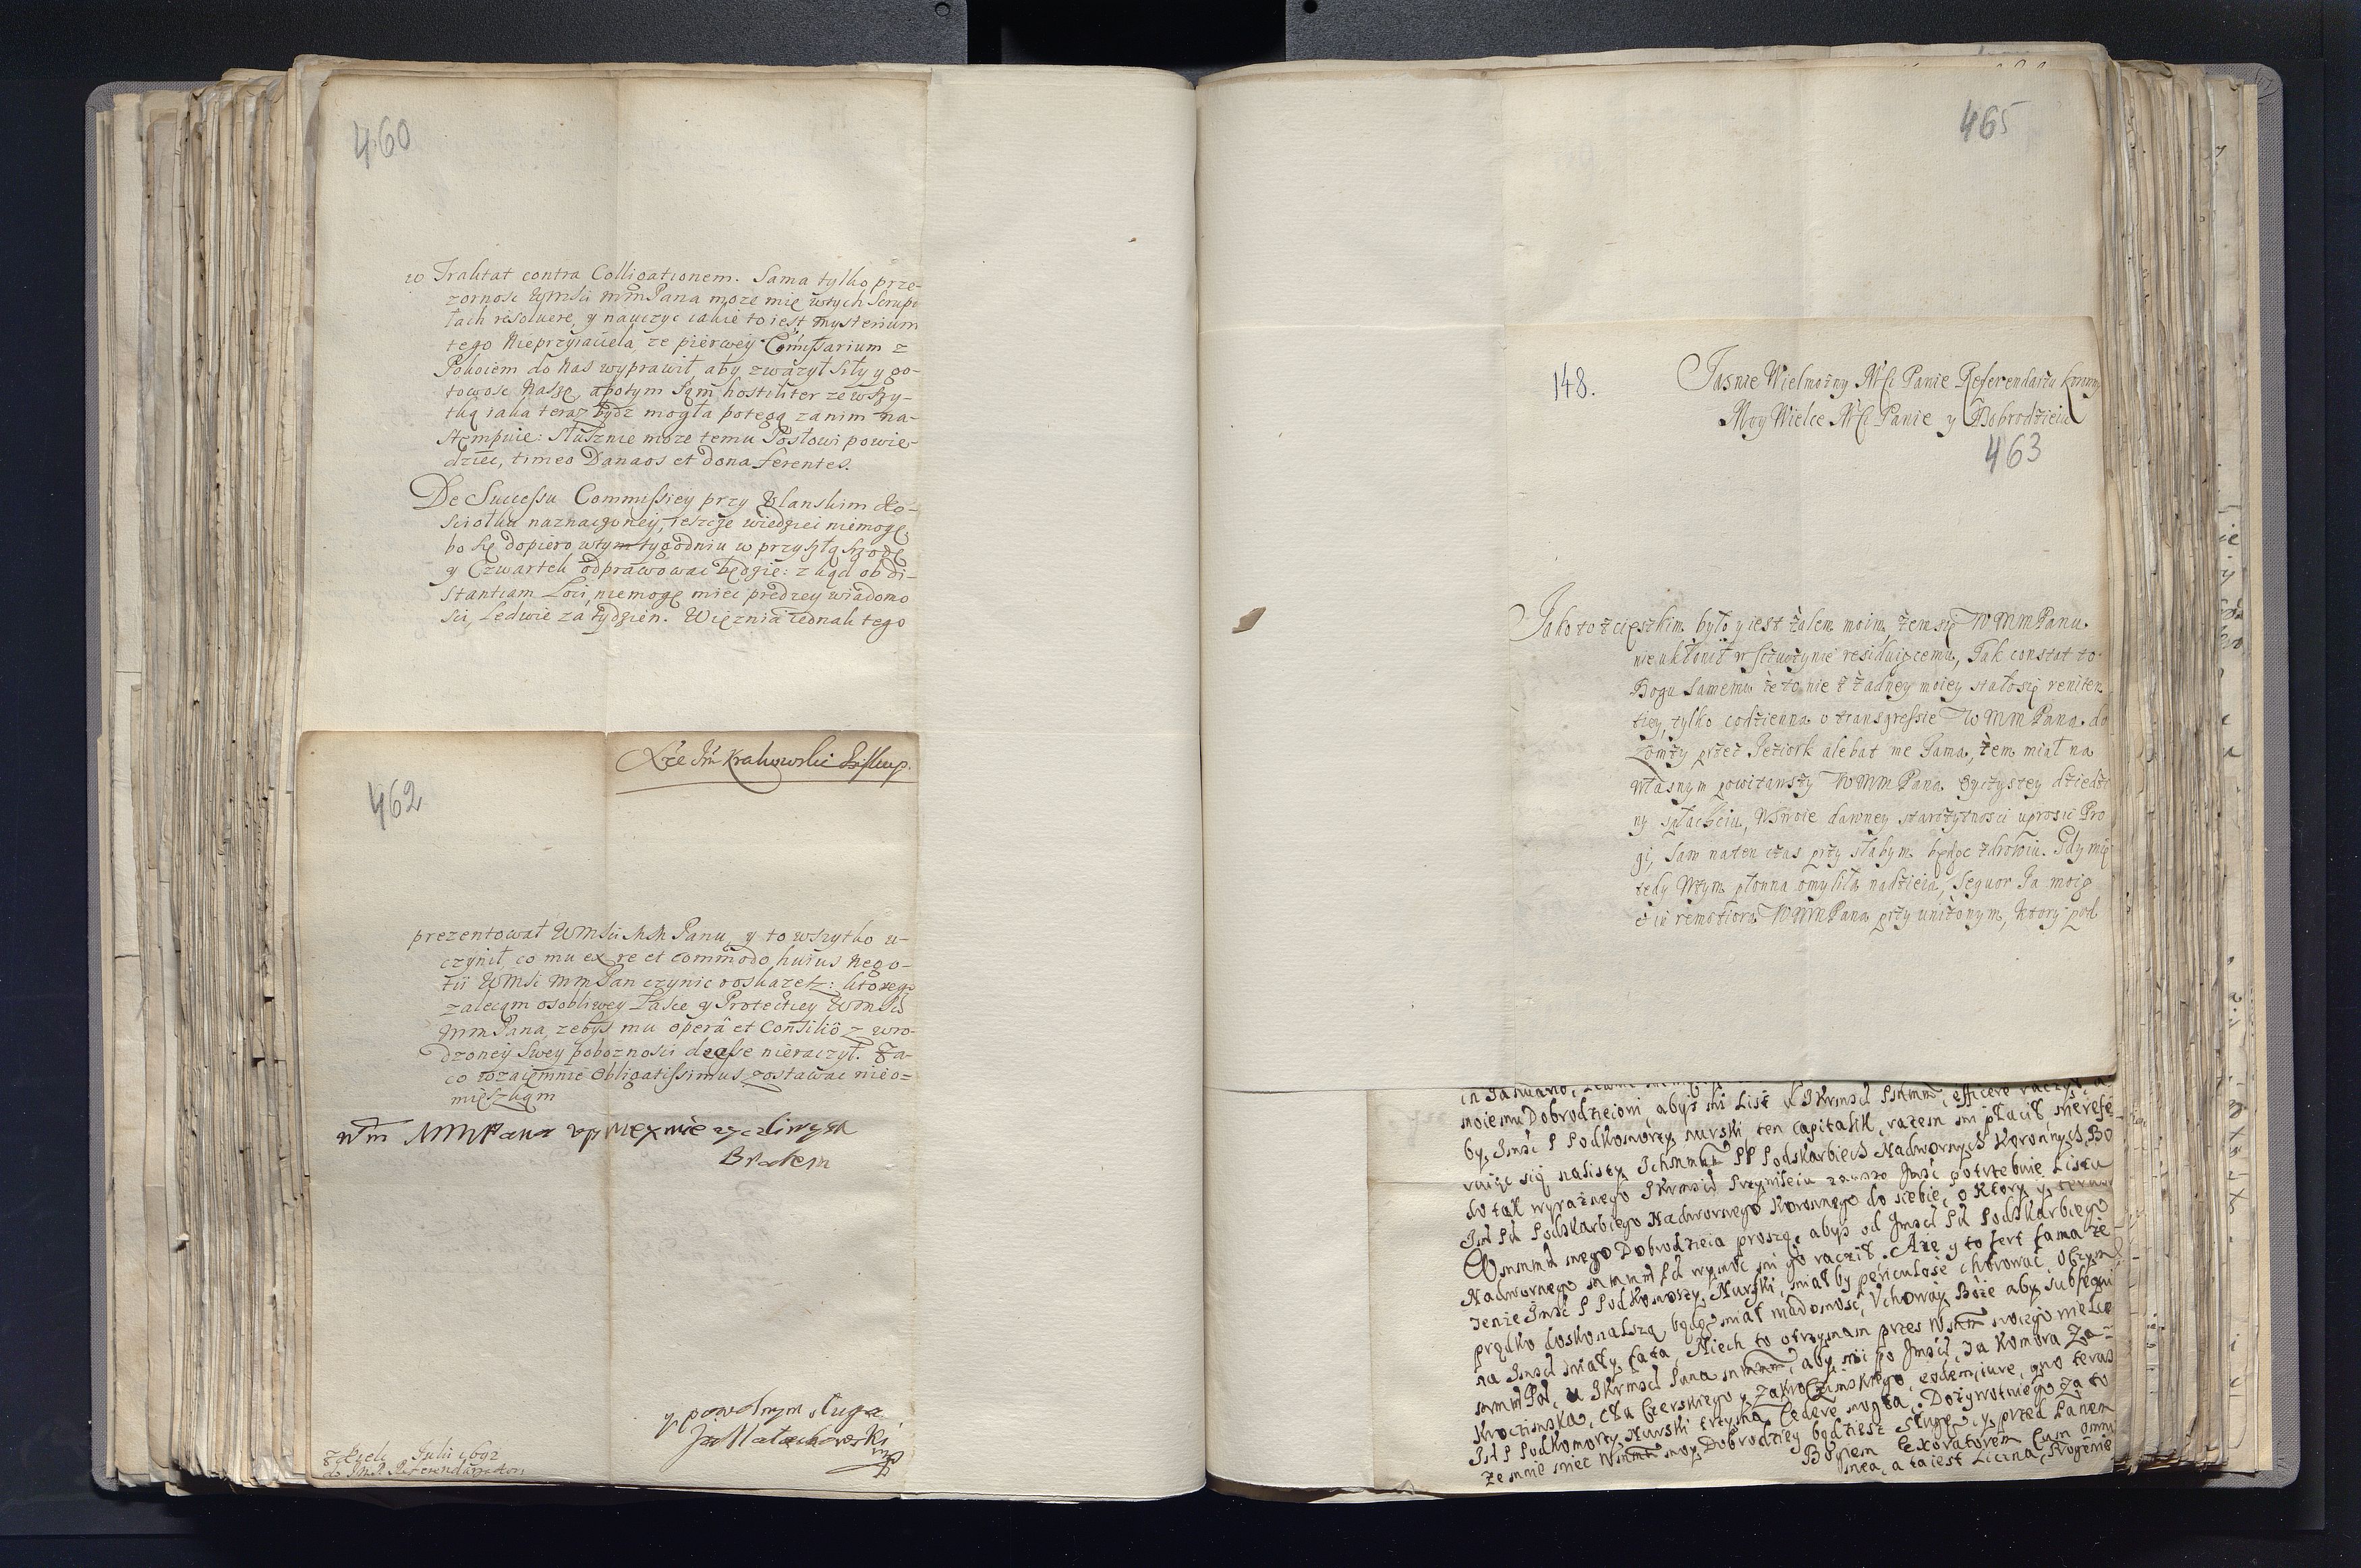 460
w Traktat contra Colligationem. Sama tylko prze-
zornosc WMsci mm Pana moze mię wtych Scrupu
łach resoluere, y nauczyc iakie to iest mysterium
tego Nieprzyiaciela, ze pierwey Comissarium z
Pokoiem do Nas wyprawił, aby zwazył siły y go-
towosc Naszę, apotym sąm hostiliter ze wszy-
tką iaka teraz bydz mogła potęgą zanim na-
stęmpuie: słusznie moze temu Posłowi powie-
dziec, timeo Danaos et dona ferentes.
De Successu Commissiey przy Ulanskim Ko-
sciołku naznaczoney, ieszcze wiedziec niemogę,
bo się dopiero wtym tygodniu w przyszłą Szrodę
y Czwartek odprawowac będzie: zkąd ob di-
stantiam Loci, niemogę miec prędzey wiadomo
sci, Ledwie za tydzien. Więznia iednak tego
Xże Jm Krakowski Biskup.
462
prezentował WMsci M M Panu, y to wszytko u-
czynił co mu ex re et commodo huius Nego-
tii WMsc mm Pan czynic roskazesz: ktorego
zalecam osobliwey Łasce y Protectiey WMsci
mm Pana, zebys mu operâ et Consiliô z wro-
dzoney Swey poboznosci deesse nieraczył. Za-
co wzaiemnie Obligatissimus zostawac nieo-
mięszkąm
Wm MMPana uprzeymie zyczliwym
Bratem
y powolnym sługą
Jan Małachowski
mp
z Kielc Julii 1692
do Jm P. Referendarza Kor.
465
148.
Jasnie Wielmożny Mći Panie Referendarzu Koronny
Moy Wielce Mći Panie y Dobrodzieiu
463
Jako to z cięszkim było y iest żalem moim, żem się WMmPanu
nie ukłonił w Sczuczynie residuiącemu, Tak constat to
Bogu Samemu że to nie z żadney moiey stałosię reniten
tiey, tylko codzienna o transgressie WMmPana do
Łomży przez Jeziork alebat me Fama, żem miał na
własnym powitawszy WMmPana Oyczystey dziedzi
ny spłachciu, Wswoie dawney starożytnosci uprosić Pro
gi, Sam naten czas przy słabym będąc zdrowiu. Gdy mię
tedy Wtym płonna omyliła nadzieia, Sequor Ja moią
remotiora WMmPana przy uniżonym, ktory pod
moiemu Dobrodzieiowi abyś mi List u JKrmsci Pmmm, efficere raczył a
by, Jmsc P Podkomorzy nurski, ten capitalik, razem mi płacił nierefe
ruiąc się nalisty Ichmmm PP Podskarbich Nadwornych Koronnych Bo
do tak wyraznego JKrmsci Przywileiu zawsze Jmsc potrzebuie Listu
Jm Pa Podskarbiego Nadwornego Koronnego do siebie, o ktory y teraz
Wmmm mego Dobrodzieia proszę, abyś od Jmsci Pa Podskarbiego
Nadwornego mmmm Pa wymoc mi go raczył. Aże y to fert fama że
ienże Jmsc P Podkomorzy Nurski, miał by periculose chorować, Oczym
prędko doskonalszą będę miał wiadomosc, Uchoway Boże aby subsequi
na Jmsci miały fata. Niech to otrzymam przez Wmm moiego wielce
mmm Pa, u JKrmsci Pana mmmm, aby mi po Jmsci, Ja Komora Za-
kroczimska, Cła Czerskiego y Zakroczimskiego, eodem iure, quo teraz
Jm P Podkomorzy Nurski trzyma, Cedere mogła. Dożywotniego za to
ze mnie miec Wmmm moy Dobrodziey będziesz sługę, y przed Panem
Bogiem Exoratorem Cum omni
mea, a taiest Liczna, Progenie